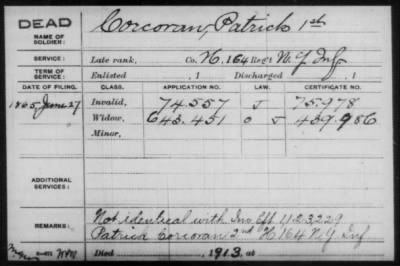 DEAD
NAME OF SOLDIER:
Corcoran, Patrick 1st
SERVICE:
Late rank, Co. H. 164 Reg't N. Y. Inf
TERM OF SERVICE:
Enlisted , 1 Discharged , 1
DATE OF FILING. CLASS. APPLICATION NO. LAW. CERTIFICATE NO.
1865 June 27 Invalid, 74.557 J 75.978
Widow, 643.451 O J 439.986
Minor,
ADDITIONAL SERVICES:
REMARKS:
Not identical with Inv Ctf 1123229
Patrick Corcoran 2nd H 164 N Y Inf
Died 1913, at